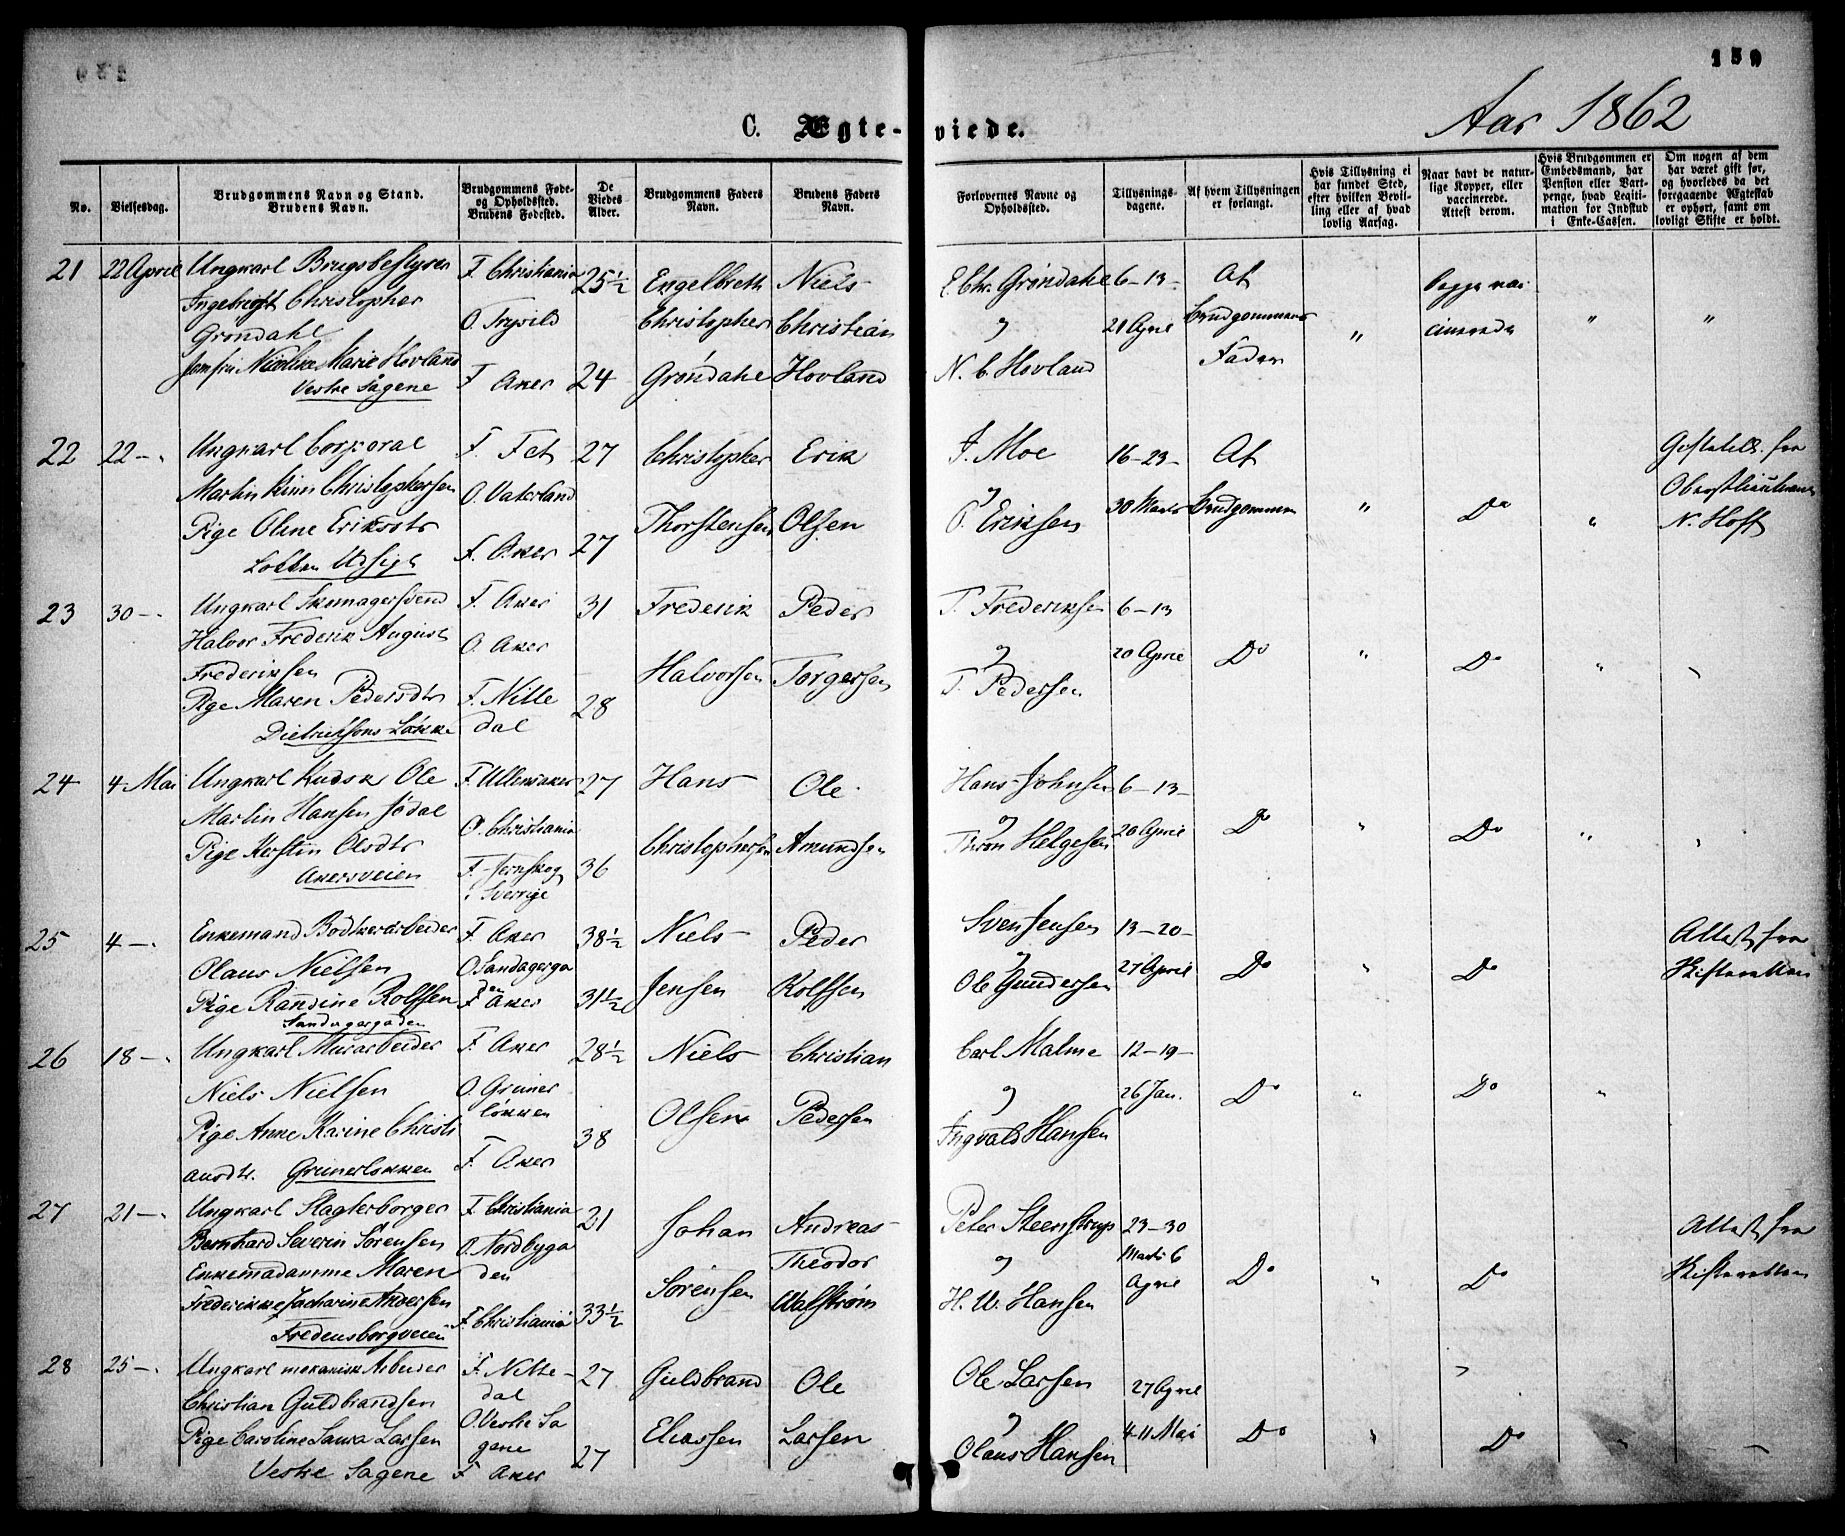 150
C. Ægte-viede.
Aar 1862
No.
Vielsesdag.
Brudgommens Navn og Stand.
Brudens Navn.
Brudgommens Føde-
og Opholdssted.
Brudens Fødested.
De
Viedes
Alder.
Brudgommens Faders
Navn.
Brudens Faders
Navn.
Forlovernes Navne og
Opholdssted.
Tillysnings-
dagene.
Af hvem Tillysningen
er forlangt.
Hvis Tillysning ei
har fundet Sted,
efter hvilken Bevil-
ling eller af hvad
lovlig Aarsag.
Naar havt de natur-
lige Kopper, eller
vaccinerede.
Attest derom.
Hvis Brudgommen er
Embedsmand, har
Pension eller Vart-
penge, hvad Legiti-
mation for Indskud
i Enke-Cassen.
Om nogen af dem
har været gift før,
og hvorledes da det
foregaaende Ægteskab
er ophørt, samt om
lovligt Skifte er holdt.
21 22 April Ungkarl Brugsbestyrer
Ingebrigt Christopher
Grøndahl
Jomfru Nicoline Marie Hovland
Vestre Sagene
F. Christiania
O. Trysild
F Aker
25½
24
Engelbreth
Christopher
Grøndahl
Niels
Christian
Hovland
E. Chr. Grøndahl
og
N. C. Hovland
6-13-
21 April
Af
Brudgommens
Fader
"
"
"
22 22-. Ungkarl Corporal
Martin Christophersen
Pige Oline Eriksdtr
F. Fet
O. Vaterland
F. Aker
27
27
Christopher
Thorstensen
Erik
Olsen
J. Moe
og
O. Eriksen
16-23-
30 Marts
Af
Brudgommen
"
Do
"
N. Hoff
23 30-. Ungkarl Skomagersvend
Halvor Frederik August
Frederiksen
Pige Maren Pedersdtr
Dietrichsons Løkke
F. Aker
O. Aker
F. Nitte
dal
31
28
Frederik
Halvorsen
Peder
Torgersen
T. Frederiksen
og
T. Pedersen
6-13
20 April
Do
"
Do
"
24 4 Mai Ungkarl Kudsk Ole
Martin Hansen Jødal
Pige Kerstin Olsdtr
Akersveien
F. Ullensaker
O. Christiania
F. Jernskog
i Sverrige
27
36
Hans
Christophersen
Ole
Amundsen
Hans Johnsen
og
Thron Helgesen
6-13-
20 April
Do
"
Do
"
25 4-. Enkemand Bødkerarbeider
Olaus Nielsen
Pige Randine Rolfsen
Sandagergaden
F. Aker
O Sandagerga
den
F. Aker
38½
31½
Niels
Jensen
Peder
Rolfsen
Sven Jensen
og
Ole Gundersen
13-20-
27 April
Do
"
Do
Attest fra
Skifteretten
26 18-. Ungkarl Murarbeider
Niels Nielsen
Pige Anne Karine Christi
ansdtr. Grünerløkken
F. Aker
O. Grüner
løkken
F. Aker
28½
38
Niels
Olsen
Christian
Pedersen
Carl Malme
og
Ingvald Hansen
12-19-
26 Jan.
Do
"
Do
"
27 21-. Ungkarl Slagterborger
Bernhard Severin Sørensen
Enkemadamme Maren
Frederikke Zacharine Andersen
Fredensborgveien
F. Christiania
O. Nordbyga
den
F. Christiania
21
33½
Johan
Sørensen
Andreas
Theodor
Walstrøm
Peter Steenstrup
og
H. W. Hansen
23-30
Marts 6
April
Do
"
Do
Attest fra
Skifteretten
28 25-. Ungkarl mekanisk Arbeider
Christian Guldbrandsen
Pige Caroline Laura Larsen
Vestre Sagene
F. Nitte-
dal
O. Vestre Sa
gene
F Aker
27
27
Guldbrand
Eliassen
Ole
Larsen
Ole Larsen
og
Olaus Hansen
27 April
4-11 Mai
Do
"
Do
"